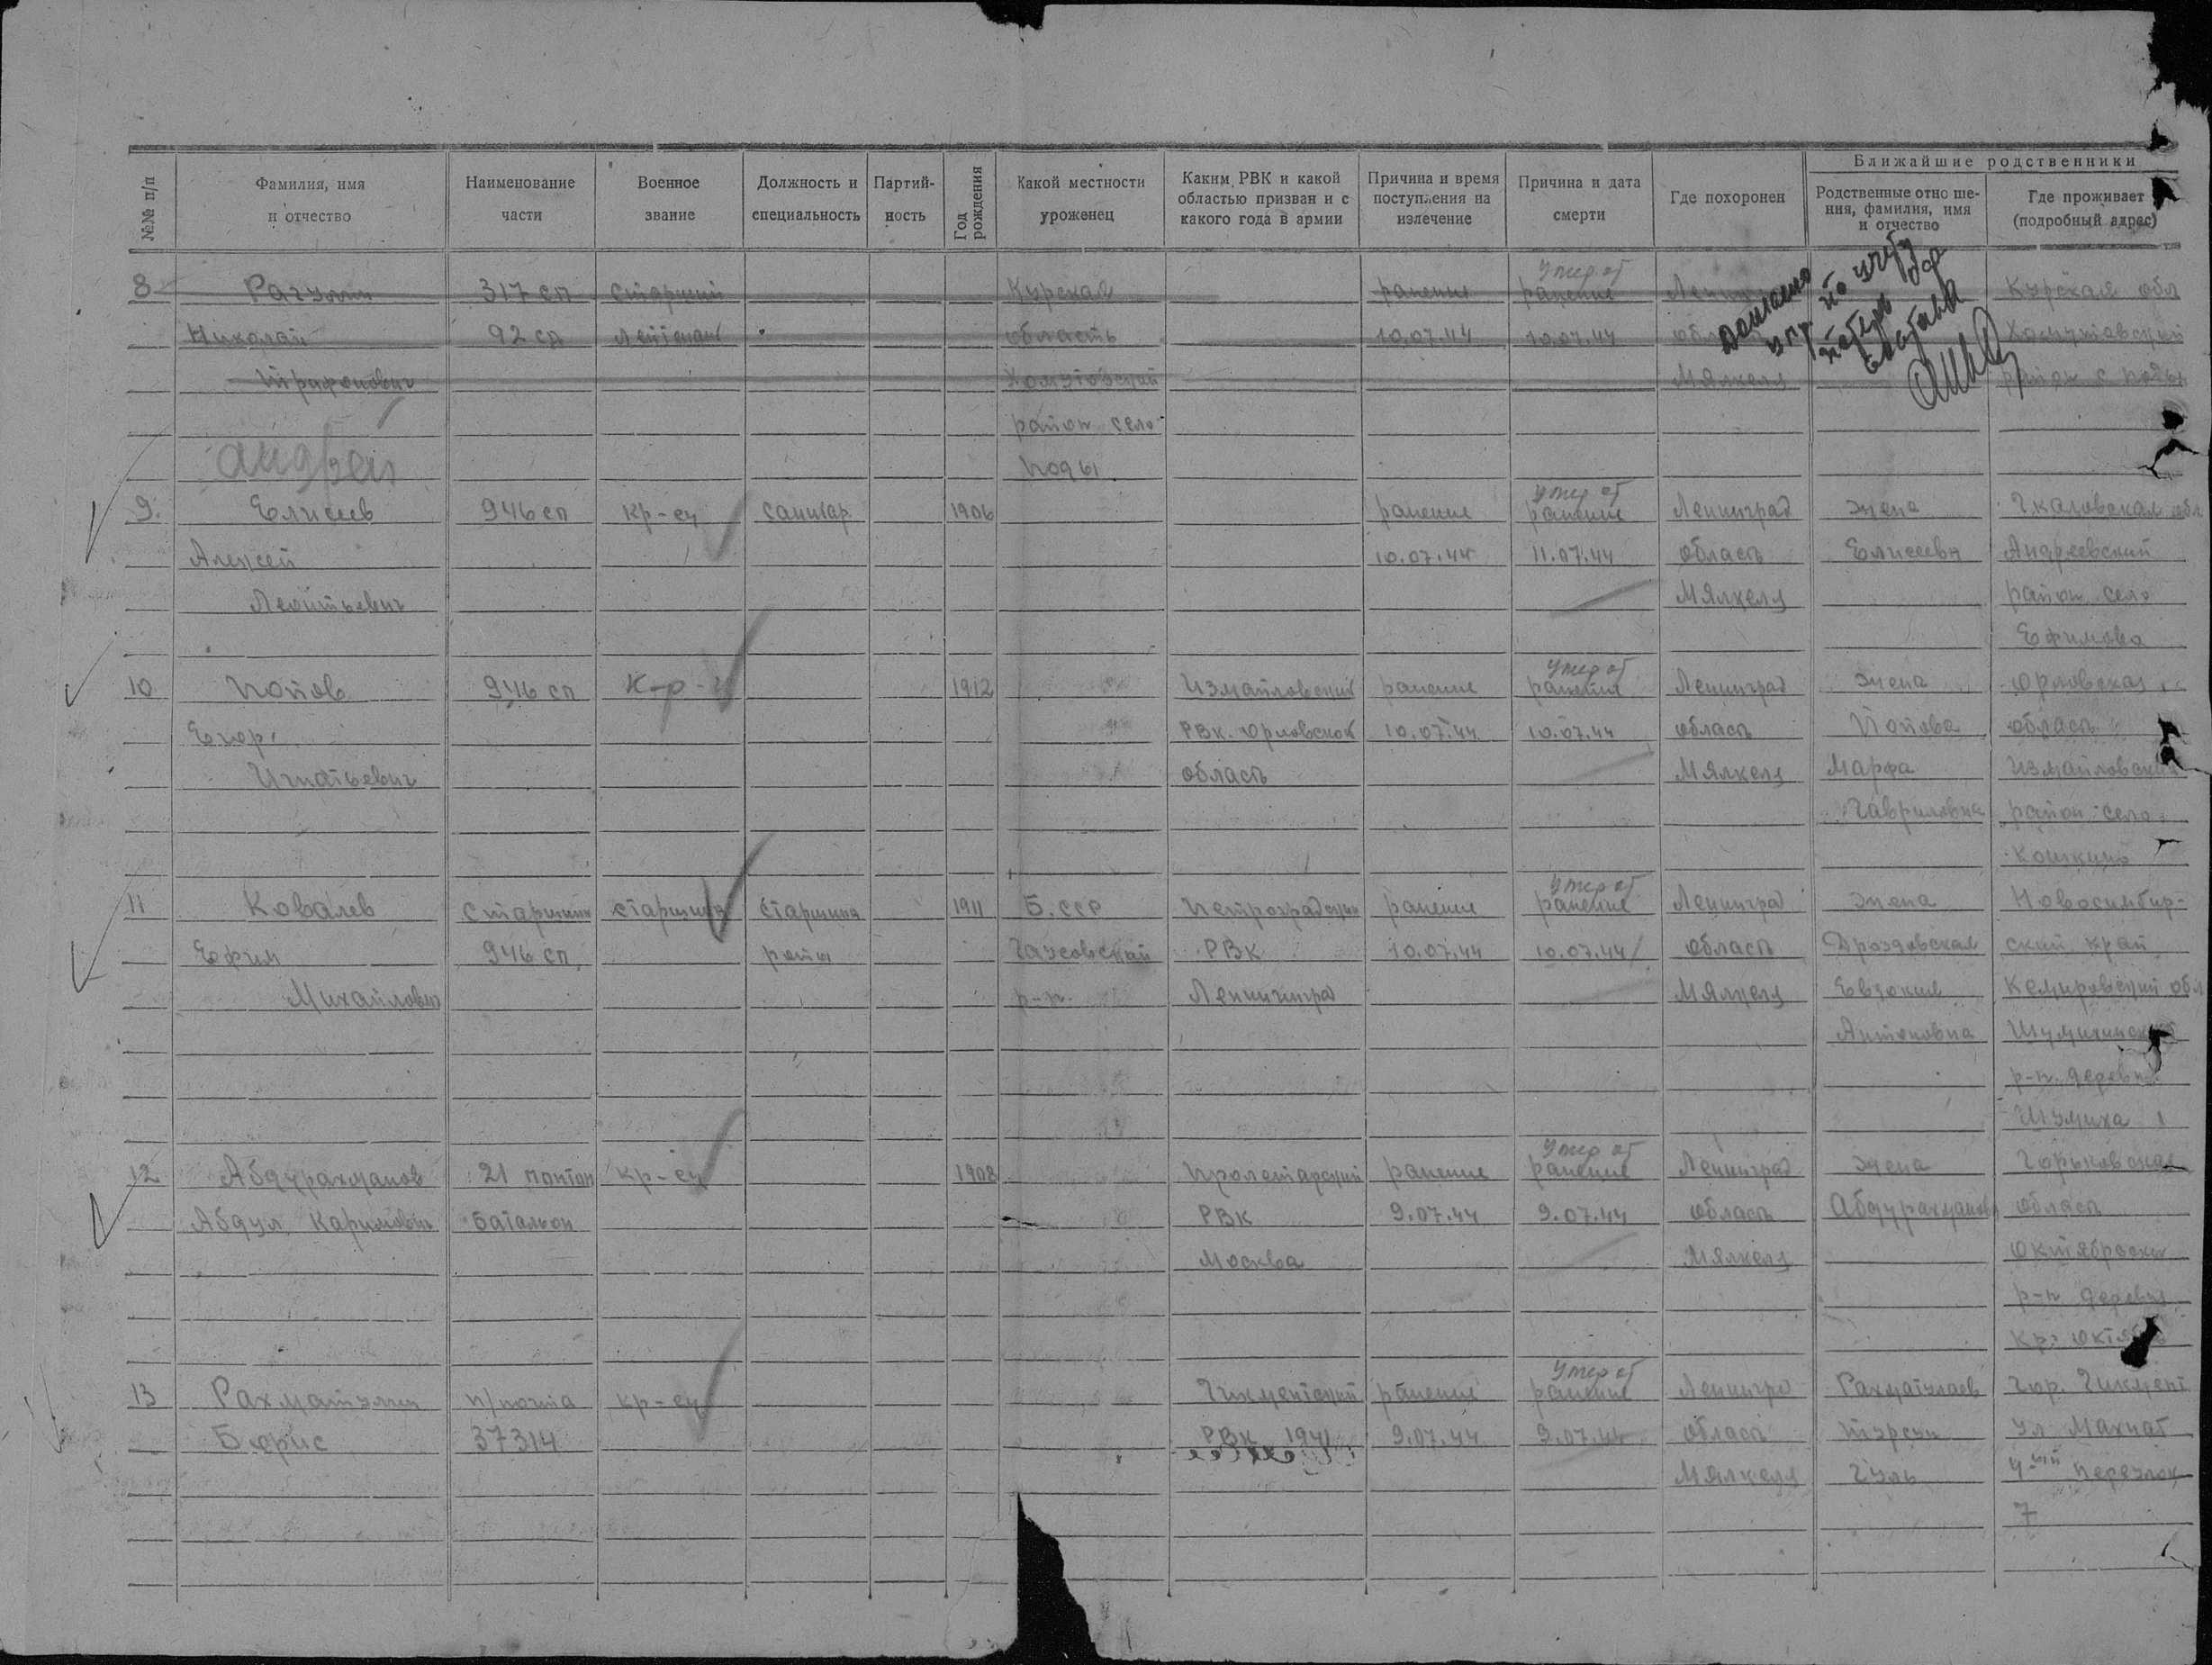 №№ п/п
Фамилия, имя и отчество
Наименование части
Военное звание
Должность и специальность
Партий-ность
Год рождения
Какой местности уроженец
Каким РВК и какой областью призван и с какого года в армии
Причина и время поступления на излечение
Причина и дата смерти
Где похоронен
Ближайшие родственники
Родственные отно ше-ния, фамилия, имя и отчество
Где проживает (подробный адрес)
8 317 сп старший Курская ранение умер от ранение Курская обл
Николай 92 сд область 10.07.44 10.07.44 Хомутовский
Трифонович Хомутовский Мялкеля район с Поды
район село
Андрей Поды
9. Елисеев 946 сп кр-ец санитар 1906 ранение умер от ранение Ленинград жена Чкаловская обл
Алексей 10.07.44 11.07.44 область Елисеева Андреевский
Леонтьевич Мялкеля район село
Ефимовка
10 Попов 946 сп 1912 Измайловский ранение умер от ранение Ленинград жена Орловская
Егор РВК Орловской 10.07.44 10.07.44 область Попова область
Игнатьевич область Мялкеля Марфа Измайловский
Гавриловна район село
11 Ковалев старшина старшина старшина 1911 Б.ССР Петроградский ранение умер от ранение Ленингра жена Новосимбир-
Ефим 946 сп роты РВК 10.07.44 10.07.44 область Дроздовская ский край
Михайлович р-н Ленинград Мялкеля Евдокия Кемировский обл
Антоновна
р-н деревня
Шумиха
12 Абдурахманов 21 понтон кр-ец 1908 Пролетарский ранение умер от ранение Ленинград жена Горьковская
Абдул Каримович батальон РВК 9.07.44 9.07.44 область Абдурахманова область
Москва Мялкеля Октябрьский
р-н деревня
Кр. Октябрь
13 п/почта кр-ец Чикментский ранение умер от ранение Ленингра гор. Чикмент
37314 РВК 1941 9.07.44 9.07.44 область
Мялкеля Гуль 4ый переулок
7